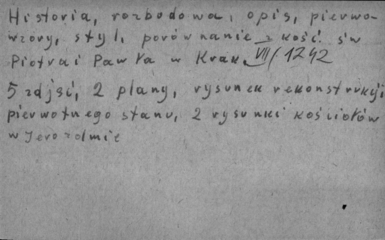 Historia, rozbudowa, opis, pierwo-
wzory, styl, porównanie z kość. św
Piotra i Pawła w Krak. VII/1242
5 zdjęć, 2 plany, rysunek rekonstrukcji
pierwotnego stanu, 2 rysunki kościołów
w Jerozolmie